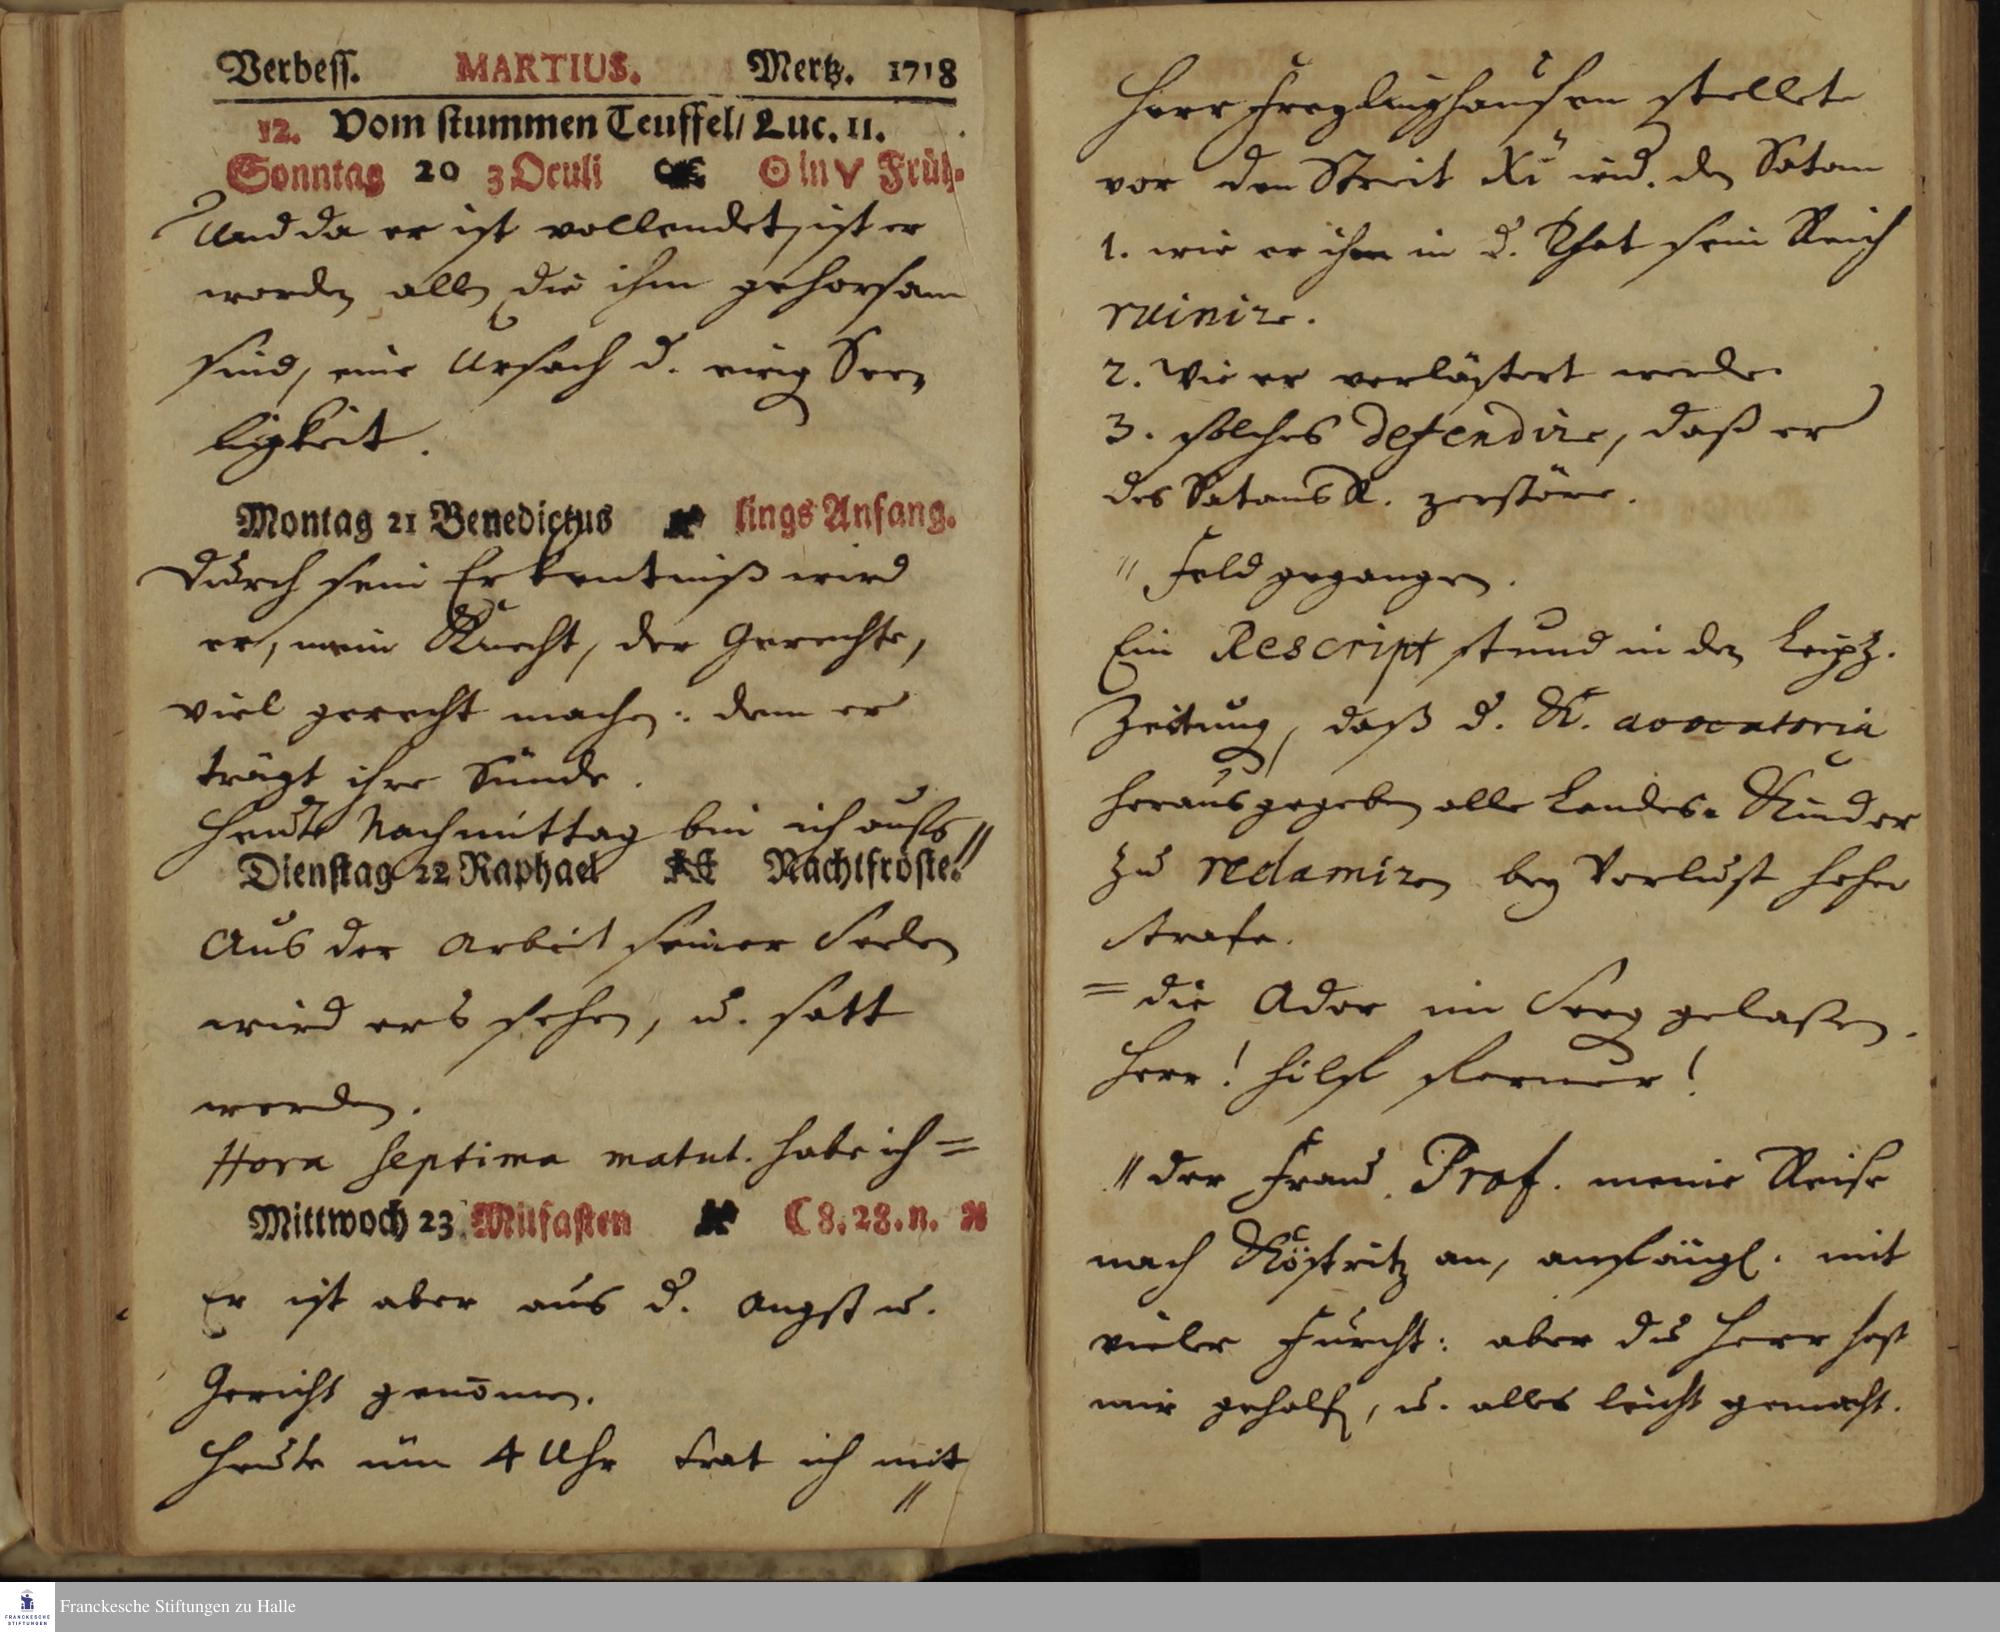 Verbess. MARTIUS. Mertz. 1718
12. Vom stummen Teuffel/ Luc. 11.
Sonntag 20 3 Oculi ☉ in ♈ Früh-
Und da er ist vollendet, ist er
worden allen die ihm gehorsam
sind, eine Ursach d. ewig See-
ligkeit.
Montag 21 Benedictus lings Anfang.
Durch sein Erkentniß wird
er, mein Knecht, der Gerechte,
viel gerecht machen: denn er
trägt ihre Sünde.
Heute Nachmittag bin ich aufs //
Dienstag 22 Raphael Nachtfröste.
Aus der Arbeit seiner Seelen
wird ers sehen, u. satt
werden.
Hora septima matut. habe ich =
Mittwoch 23 Mitfasten ☾ 8. 28. n.
Er ist aber aus d. Angst u.
Gericht genom̄en.
Heute um 4 Uhr trat ich mit
//
Herr Freylinghausen stellete
vor den Streit Xi wid. den Satan
1. wie er ihm in d. That sein Reich
ruinire.
2. Wie er verlästert werde.
3. solches defendire, daß er
des Satans R. zerstöre.
" Feld gegangen.
Ein Rescript stund in den Leipz.
Zeitung, daß d. K. avocatoria
herausgegeben alle Landes-Kinder
zu reclamiren bey Verlust hoher
strafe.
= die Ader im Seeg gelaßen.
Herr! hilf ferner!
// der Frau Prof. meine Reise
nach Köstritz an, anfängl. mit
vieler Furcht: aber du Herr hast
mir geholfen, u. alles leicht gemacht.
Franckesche Stiftungen zu Halle
FRANCKESCHE
STIFTUNGEN